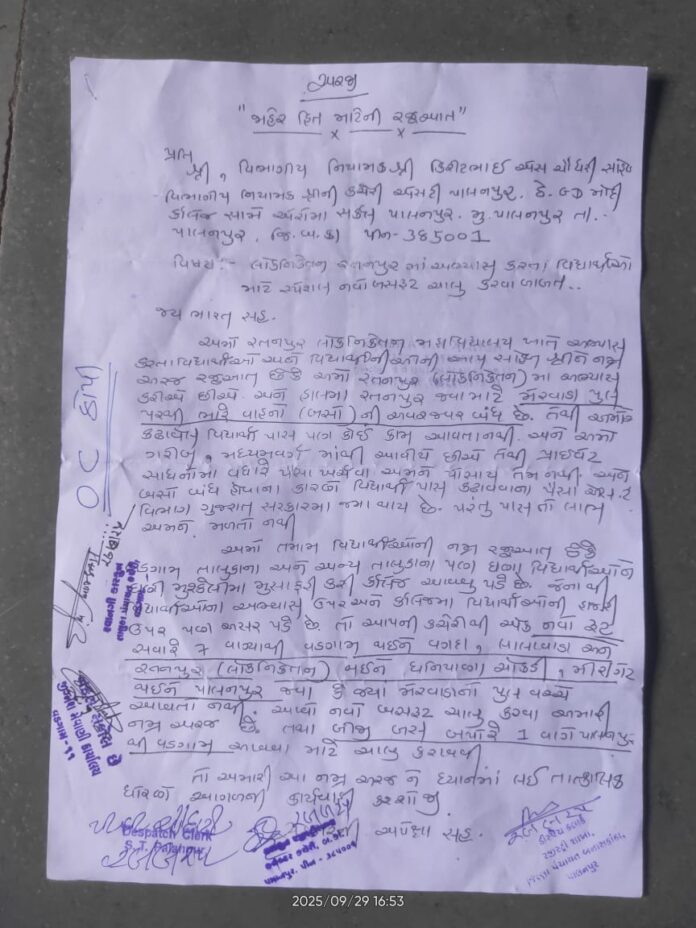 અરજી
"જાહેર હિત માટેની રજુઆત"
પ્રતિ
શ્રી, વિભાગીય નિયામક શ્રી કિરીટભાઈ એસ ચૌધરી સાહેબ
વિભાગીય નિયામક શ્રીની કચેરી એસટી પાલનપુર. ઠે. GD મોદી
કોલેજ સામે એરોમા સર્કલ પાલનપુર. મુ. પાલનપુર તા.-
પાલનપુર, જિ.બ.કાં પીન-385001
વિષય:- લોકનિકેતન રતનપુર માં અભ્યાસ કરતા વિદ્યાર્થીઓ
માટે સ્પેશલ નવો બસરૂટ ચાલુ કરવા બાબત..
જય ભારત સહ.
અમો રતનપુર લોકનિકેતન મહાવિદ્યાલય ખાતે અભ્યાસ
કરતા વિદ્યાર્થીઓ અને વિદ્યાર્થીનીઓની આપ સાહેબ શ્રીને નમ્ર
અરજ રજુઆત છેકે અમો રતનપુર (લોકનિકેતન) માં અભ્યાસ
કરીએ છીએ. અને હાલમાં રતનપુર જવા માટે મેરવાડા પુલ
પરથી ભારે વાહનો (બસો) ની અવરજવર બંધ છે. તેથી અમોએ
કઢાવેલ વિદ્યાર્થી પાસ પણ કોઈ કામ આવતા નથી. અને અમો
ગરીબ, મધ્યમવર્ગ માંથી આવીએ છીએ તેથી પ્રાઈવેટ
સાધનોમાં વધારે પૈસા ખર્ચવા અમને પોસાય તેમ નથી. અને
બસો બંધ હોવાના કારણે વિદ્યાર્થી પાસ કઢાવવાના પૈસા એસ.ટ
વિભાગ ગુજરાત સરકારમાં જમા થાય છે. પરંતુ પાસ નો લાભ
અમને મળતો નથી
અમો તમામ વિદ્યાર્થીઓની નમ્ર રજુઆત છેકે
વડગામ તાલુકાના અને અન્ય તાલુકાના પણ ઘણા વિદ્યાર્થીઓને
ઘણી મુશ્કેલીમાં મુસાફરી કરી કોલેજ આવવુ પડે છે. જેના થી
વિદ્યાર્થીઓના અભ્યાસ ઉપર અને કોલેજમાં વિદ્યાર્થીઓની હાજરી
ઉપર પણ અસર પડે છે. તો આપની કચેરીથી એક નવો રૂટ
સવારે 7 વાગ્યાથી વડગામ થઈને વગદા, લાલાવાડા અને
રતનપુર (લોકનિકેતન) થઈને ધનિયાણા ચોકડી, મીરાગેટ
થઈને પાલનપુર જવા કે જ્યાં મેરવાડાનો પુલ વચ્ચે
આવતો નથી. એવો નવો બસરૂટ ચાલુ કરવા અમારી
નમ્ર અરજ છે. તથા બીજી બસ બપોરે 1 વાગે પાલનપુર
થી વડગામ આવવા માટે ચાલુ કરાવવી
તો અમારી આ નમ્ર અરજ ને ધ્યાનમાં લઈ તાત્કાલિક
ધોરણે આગળની કાર્યવાહી કરશોજી
અપેક્ષા સહ.
OC કોપી
જીગ્નેશ મેવાણી કાર્યાલય
વડગામ-૧૧
Despatch Clerk
S.T. Palanpur
જિલ્લા પંચાયત બનાસકાંઠા,
પાલનપુર
2025/09/29 16:53